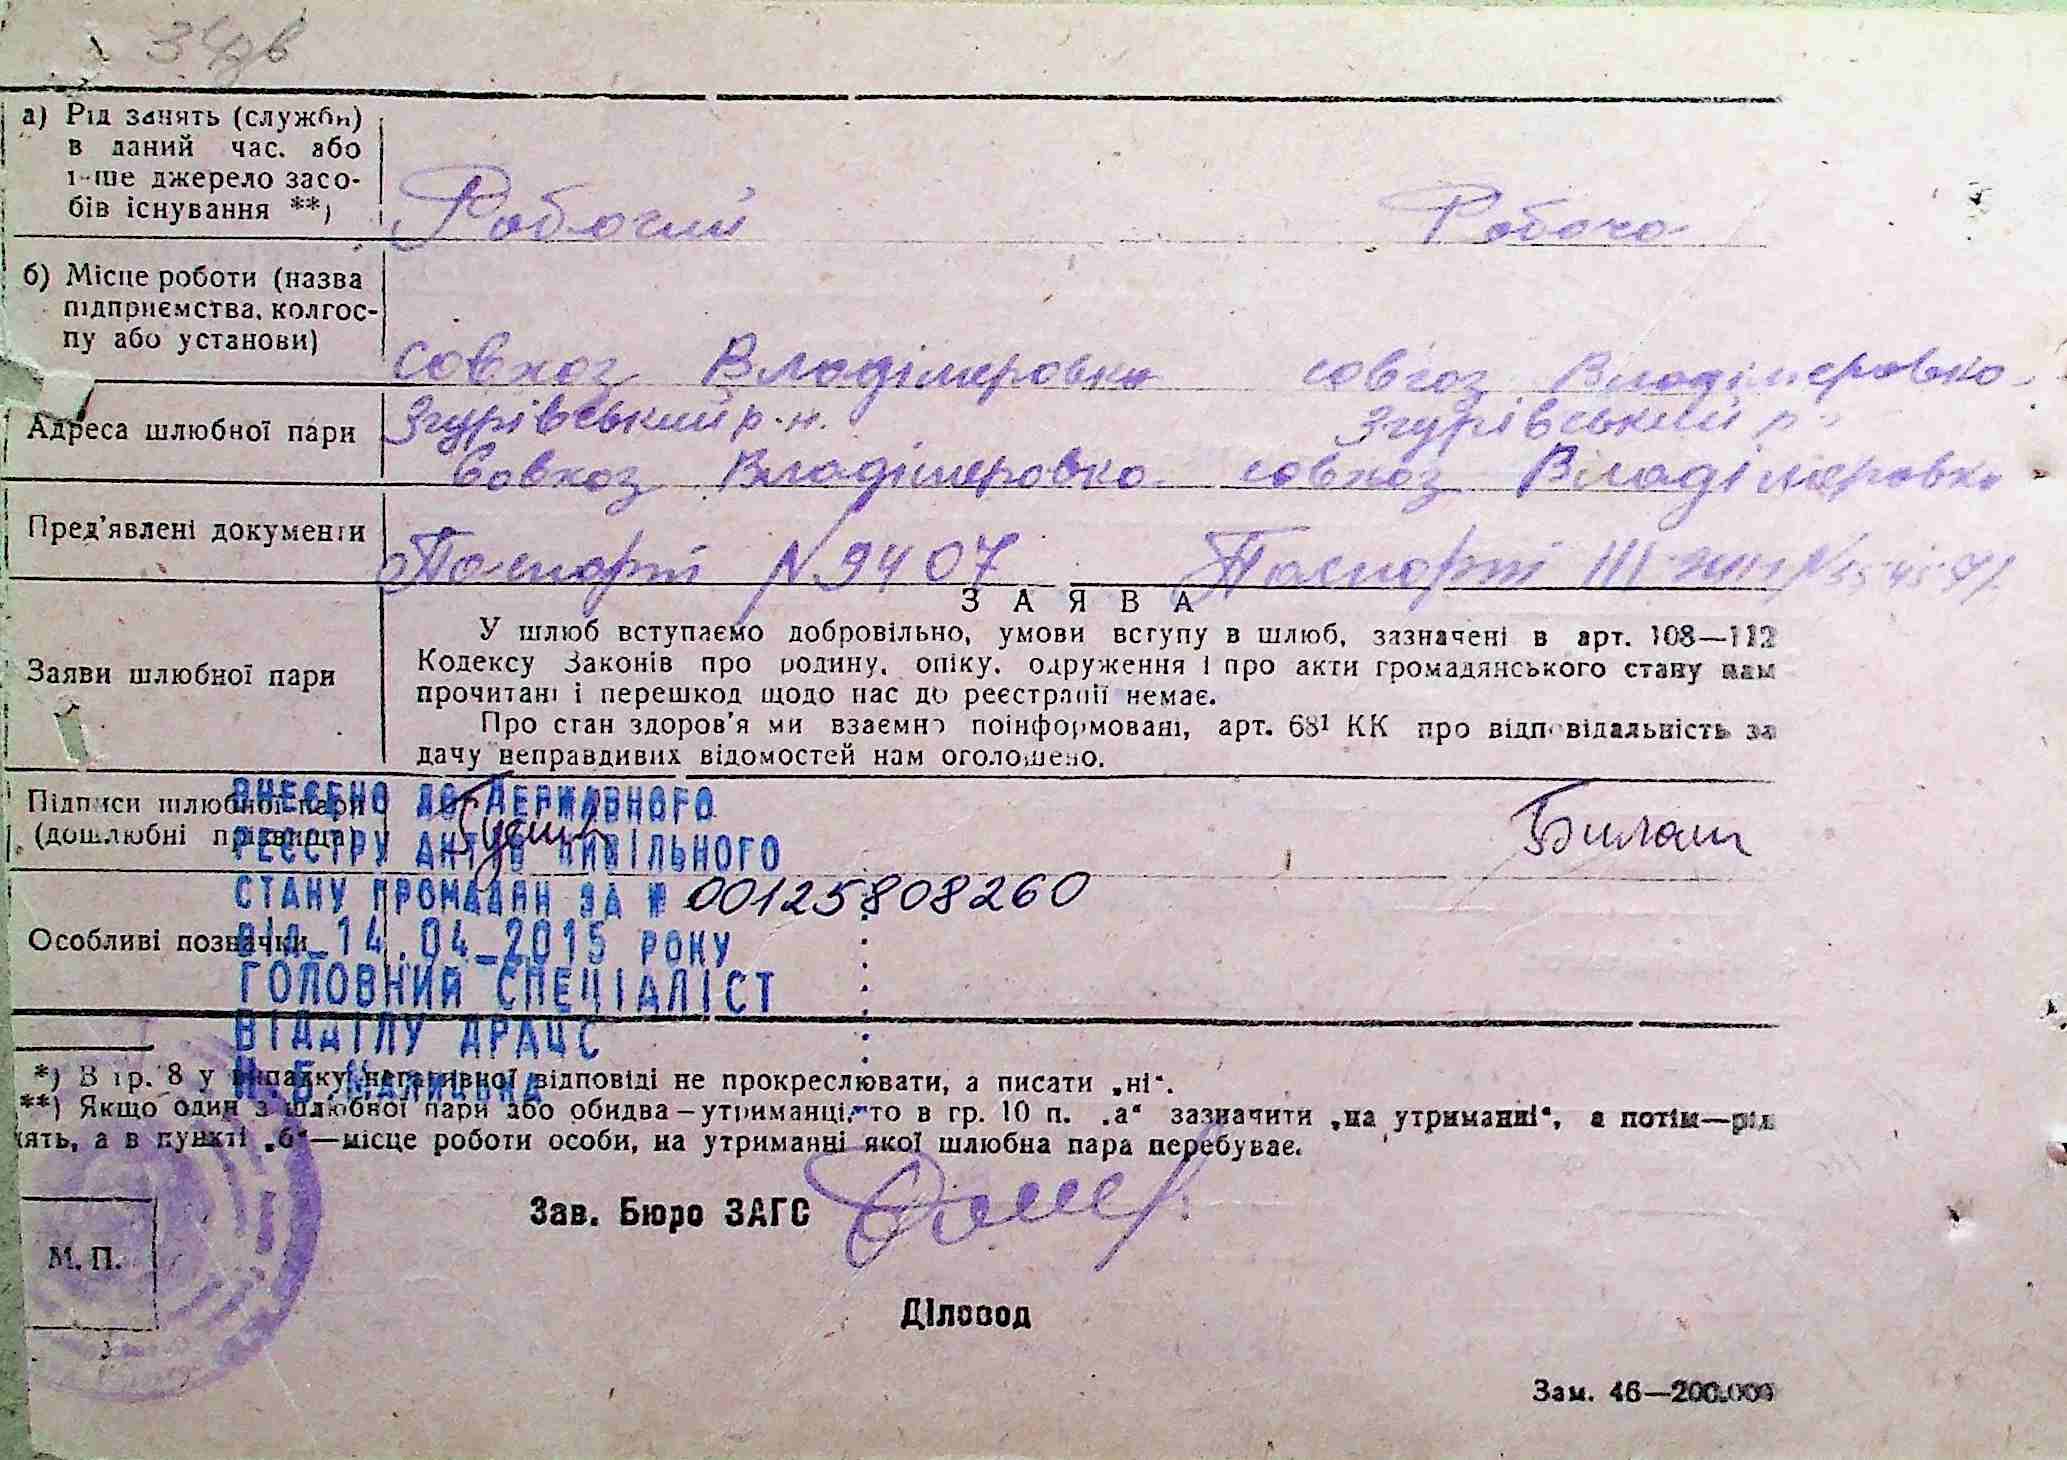 а) Рід занять (служби)
в даний час. або
інше джерело засо-
бів існування **)
Робочий Робоча
б) Місце роботи (назва
підприємства, колгос-
пу або установи)
совхоз Владімеровка совхоз Владімеровка
Адреса шлюбної пари
Згурівський р-н. Згурівський р-
Совхоз Владімеровка совхоз Владімеровка
Пред'явлені документи
Паспорт N 9407 Паспорт III
ЗАЯВА
Заяви шлюбної пари
У шлюб вступаємо добровільно, умови вступу в шлюб, зазначені в арт. 108—112
Кодексу Законів про родину, опіку, одруження і про акти громадянського стану нам
прочитані і перешкод щодо нас до реєстрації немає.
Про стан здоров'я ми взаємно поінформовані, арт. 68¹ КК про відповідальність за
дачу неправдивих відомостей нам оголошено.
Підписи шлюбної пари
(дошлюбні прізвища)
Билаш
ВНЕСЕНО ДО ДЕРЖАВНОГО
РЕЄСТРУ АКТІВ ЦИВІЛЬНОГО
СТАНУ ГРОМАДЯН ЗА № 00125808260
ВІД 14.04.2015 РОКУ
ГОЛОВНИЙ СПЕЦІАЛІСТ
ВІДДІЛУ ДРАЦС
Особливі позначки
*) В гр. 8 у випадку негативної відповіді не прокреслювати, а писати „ні“.
**) Якщо один з шлюбної пари або обидва—утриманці, то в гр. 10 п. „а“ зазначити „на утриманні“, а потім—рід
нять, а в пункті „б“—місце роботи особи, на утриманні якої шлюбна пара перебуває.
Зав. Бюро ЗАГС
М. П.
Діловод
Зам. 46—200.000